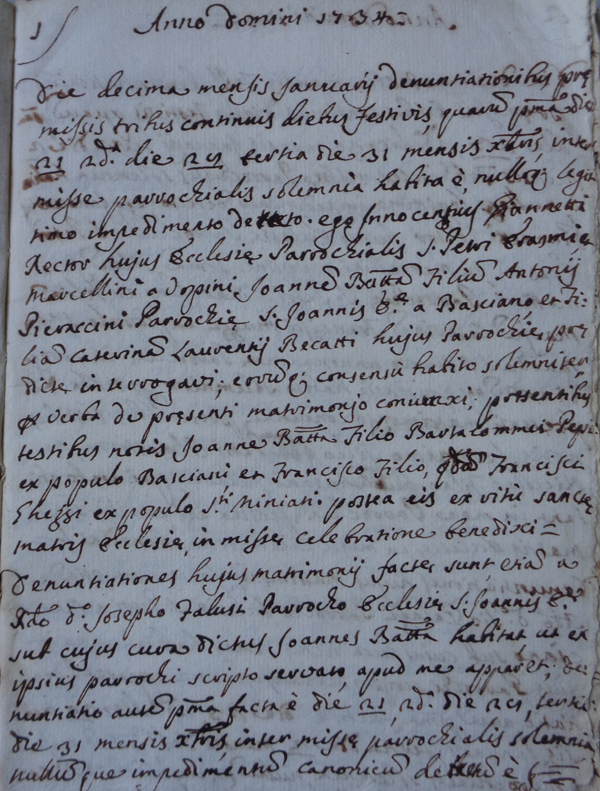 1 Anno Domini 1734 =
Die decima mensis Januarij denuntiationibus prę
missis tribus continuis diebus festivis, quarũ pma die
21 2da die 29 tertia die 31 mensis Xbris, inter
missę parrochialis solemnia habita è, nulloq; legi
timo impedimento detecto. ego Innocentius Giannetti
Rector hujus Ecclesię Parrochialis S. Petri Erasmi et
Marcellini a Vopini Joannẽ Battam Filiũ Antonij
Pieraccini Parrochię S. Joannis Bę a Basciano et Fi-
liã Caterinã Laurentij Becatti hujus Parrochię, prę
dictę interrogavi; eorũq; consensũ habito solemniter
p verba de pręsenti matrimonjo coniunxi; pręsentibus
testibus notis Joanne Batta Filio Bartalommei Pepi
ex populo Basciani et Francisco Filio, Francisci
Ghezzi ex populo Sti Miniati. postea eis ex ritũ sanctę
matris Ecclesię, in missę celebratione benedixi =
Denuntiationes hujus matrimonij factę sunt etiã a
Rdo D. Josepho Falusi Parrocho Ecclesię S. Joannis B.
sub cujus cura dictus Joannes Batta habitat, ut ex
ipsius parrochi scripto servato, apud me apparet; de-
nuntiatio autẽ pma facta è die 21, 2da die 29, tertia
die 31 mensis Xbris, inter missę parrochialis solemnia
nullũque impedimentũ canonicũ detectũ è